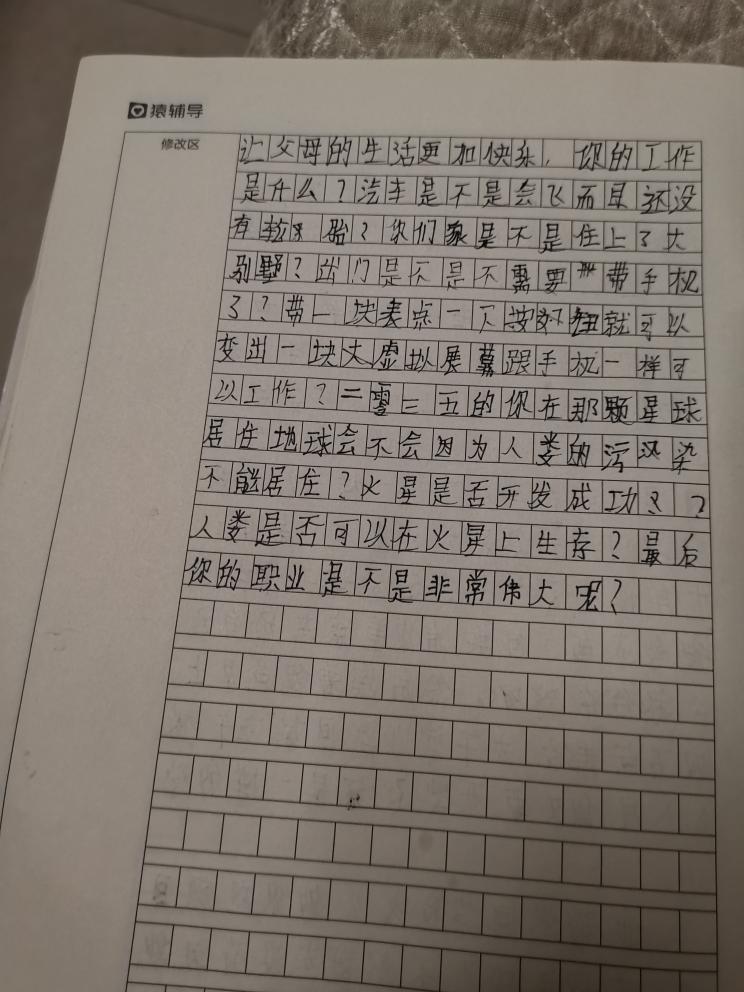 猿辅导
修改区
让父母的生活更加快乐，你的工作
是什么？汽车是不是会飞而且还没
有轮胎？你们家是不是住上了大
别墅？出门是不是不需要带手机
了？带一块表点一下按钮就可以
变出一块大虚拟展幕跟手机一样可
以工作？二零三五的你在那颗星球
居住地球会不会因为人类的污染
不能居住？火星是否开发成功？
人类是否可以在火星上生存？最后
你的职业是不是非常伟大呢？